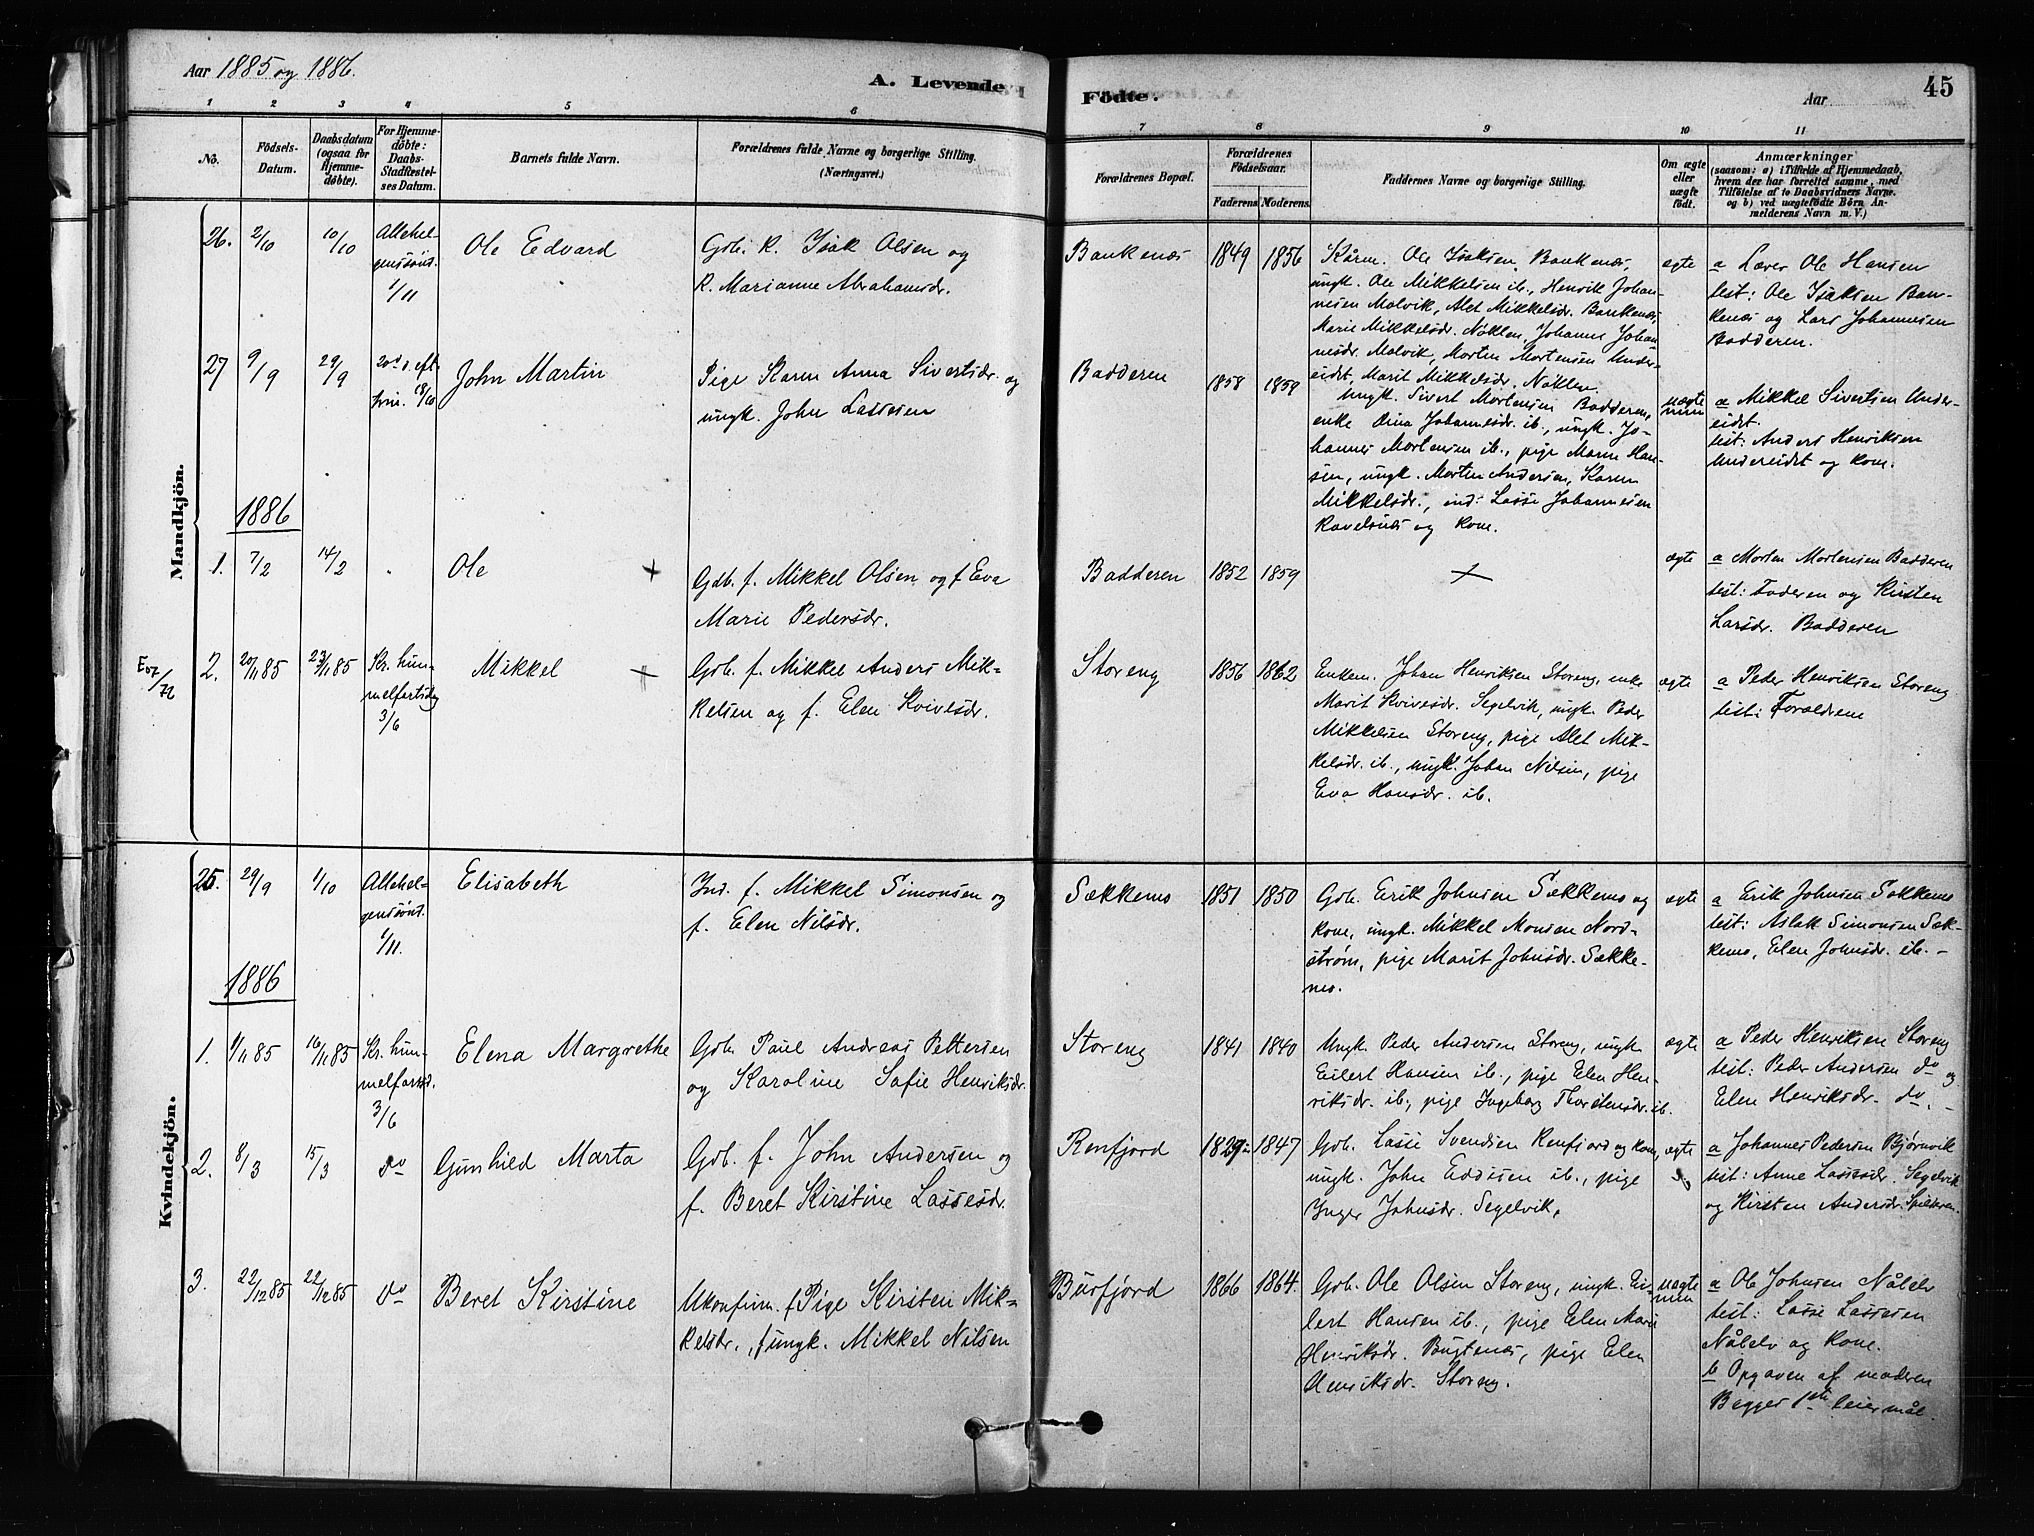 Aar 1885 og 1886.
A. Levende Fødte.
Aar
45
1 2 3 4 5 6 7 8 9 10 11
No.
Fødsels-
Datum.
Daabsdatum
(ogsaa for
Hjemme-
døbte).
For Hjemme-
døbte:
Daabs-
Stadfæstel-
ses Datum.
Barnets fulde Navn.
Forældrenes fulde Navne og borgerlige Stilling.
(Næringsvei.)
Forældrenes Bopæl.
Forældrenes
Fødselsaar.
Faderens Moderens.
Faddernes Navne og borgerlige Stilling.
Om ægte
eller
uægte
født.
Anmærkninger
(saasom: a) i Tilfælde af Hjemmedaab,
hvem der har forrettet samme, med
Tilføielse af to Daabsvidners Navne.
og b) ved uægtefødte Børn An-
melderens Navn m. V.)
Mandkjøn.
26.
2/10
10/10
Allehel-
genssønd.
1/11
Ole Edvard
Gdb. k. Isak Olsen og
k. Marianne Abrahamsdr.
Bankenæs
1849
1856
Ole Isaksen, Bankenæs,
ungk. Ole Mikkelsen ib., Henrik Johan-
nesen Malvik, Alet Mikkelsdr. Bankenæs,
Marie Mikkelsdr. Nøklen, Johanne Johan-
nesdr. Malvik, Morten Mortensen Under-
eidet, Marit Mikkelsdr. Nøklen
ægte
a Lærer Ole Hansen
test: Ole Isaksen Ban-
kenæs og Lars Johannesen
Badderen.
27
9/9
29/9
20d s. eft.
trin. 18/10
John Martin
Pige Karen Anna Sivertsdr. og
ungk. John Lassesen
Badderen
1858
1859
ungk. Sivert Mortensen Badderen,
enke Johannesdr. ib., ungk. Jo-
hannes Mortensen ib., pige Maren Han-
sen, ungk. Morten Andersen, Karen
Mikkelsdr., ind: Lasse Johannesen
og kone.
uægte
a Mikkel Sivertsen Under-
eidet.
test: Anders Henriksen
Undereidet og kone.
1886
1.
7/2
14/2
Ole +
Gdb. f. Mikkel Olsen og f. Eva
Marie Pedersdr.
Badderen
1852
1859
+
ægte
a Morten Mortensen Badderen
test: Faderen og Kirsten
Larsdr. Badderen
2.
20/11 85
23/11 85
Kr. him-
melfartsdag
3/6
Mikkel +
Gdb. f. Mikkel Anders Mik-
kelsen og f. Elen Kvivesdr.
Storeng
1856
1862
Enkem. Johan Henriksen Storeng, enke
Marit Kvivesdr. Segelvik, ungk. Peder
Mikkelsen Storeng, pige Alet Mik-
kelsdr. ib., ungk. Johan Nilsen, pige
Eva Hansdr. ib.
ægte
a Peder Henriksen Storeng
test: Forældrene
Kvindekjøn.
25.
29/9
1/10
Allehel-
genssønd.
1/11.
Elisabeth
Ind. f. Mikkel Simonsen og
f. Elen Nilsdr.
Sækkemo
1851
1850
Gdb. Erik Johnsen Sækkemo og
kone, ungk. Mikkel Monsen Nord-
strøm, pige Marit Johnsdr. Sække-
mo.
ægte
a Erik Johnsen Sækkemo
test: Aslak Simonsen Sæk-
kemo, Elen Johnsdr. ib. -
1886
1.
11/11 85
16/11 85
Kr. him-
melfartsd.
3/6
Elena Margrethe
Gdb. Paul Andreas Pettersen
og Karoline Sofie Henriksdr.
Storeng
1841
1840
Ungk. Peder Andersen Storeng, ungk.
Eilert Hansen ib., pige Elen Hen-
riksdr. ib., pige Ingeborg Thorstensdr. ib.
ægte
a Peder Henriksen Storeng
test: Peder Andersen do og
Elen Henriksdr. do. -
2.
8/3
15/3
do
Gunhild Marta
Gdb. f. John Andersen og
f. Beret Kirstine Lassesdr.
Renfjord
1847
Gdb. Lasse Svendsen Renfjord og kone,
ungk. John Eddisen ib., pige
Inger Johnsdr. Segelvik.
ægte
a Johannes Pedersen Bjørnvik
test: Anne Lassesdr. Segelvik
og Kirsten Andersdr. Spilderen.
3.
22/12 85
22/12 85
do
Beret Kirstine
Ukonfirm. f. Pige Kirsten Mik-
kelsdr., f. ungk. Mikkel Nilsen
Burfjord
1866
1864.
Gdb. Ole Olsen Storeng, ungk. Ei-
lert Hansen ib., pige Elen Marie
Henriksdr. Bugtenæs, pige Elen
Henriksdr. Storeng.
uægte
a Ole Johnsen Nålelv
test: Lasse Lassesen
Nålelv og kone.
b Opgaven af moderen
Begges 1ste leiermål.